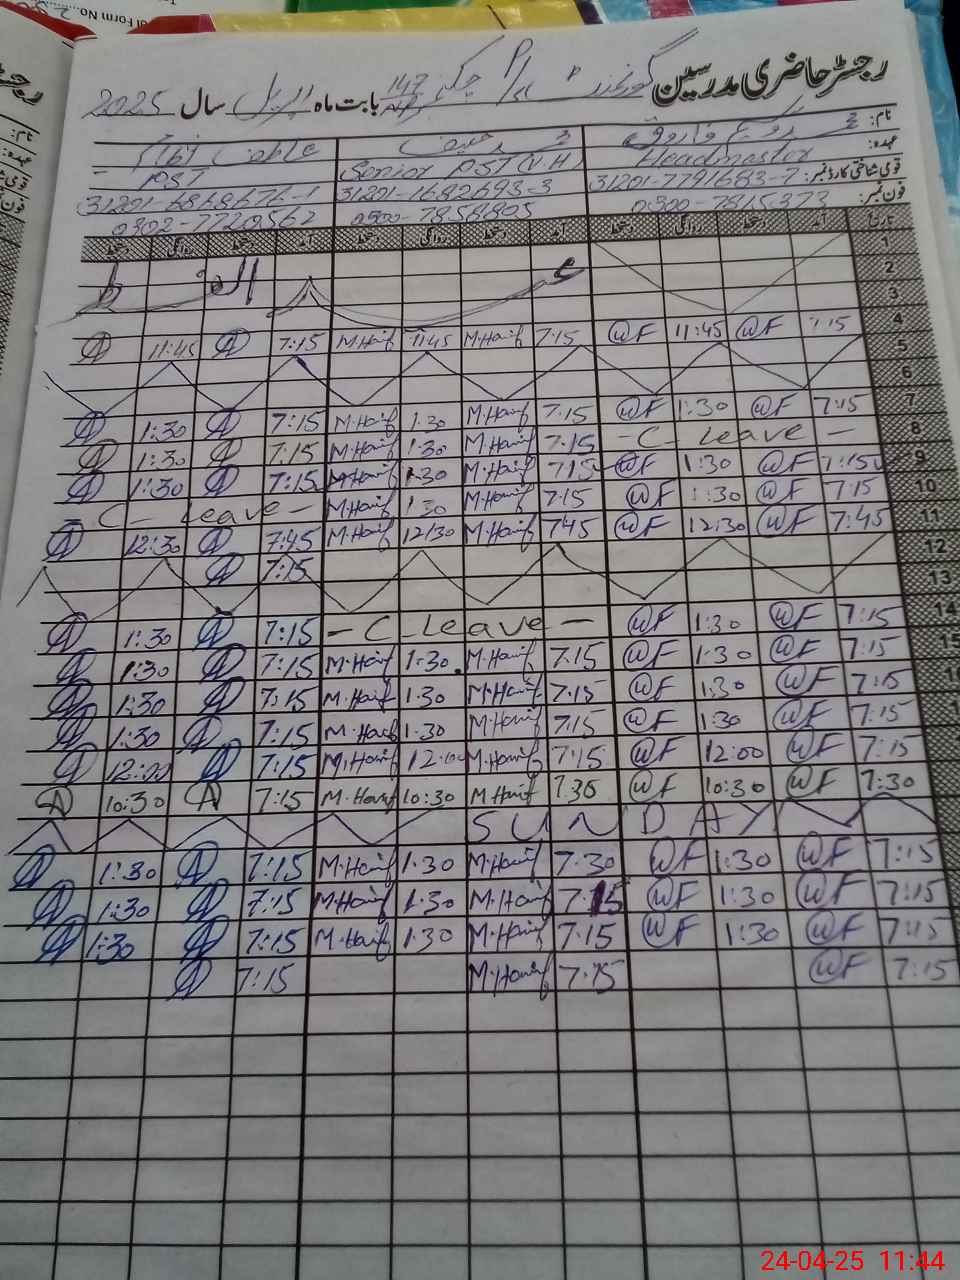 رجسٹر حاضری مدرسین گورنمنٹ P/S چک 147 بابت ماہ اپریل سال 2025
نام:
عہدہ: Headmaster Senior PST (V.H) PST
قومی شناختی کارڈ نمبر: 31201-7791683-7 31201-1682693-3
فون نمبر: 0300-7815373 0300-7858805 0302-7720562
تاریخ آمد دستخط روانگی دستخط آمد دستخط روانگی دستخط آمد دستخط روانگی دستخط
1
2
3
عید الفطر
4 7:15 WF 11:45 WF 7:15 M.Hanif 11:45 M.Hanif 7:15 A 11:45 A
5
6
7 7:15 WF 1:30 WF 7:15 M.Hanif 1:30 M.Hanif 7:15 A 1:30 A
8 - C - Leave - 7:15 M.Hanif 1:30 M.Hanif 7:15 A 1:30 A
9 7:15 WF 1:30 WF 7:15 M.Hanif 1:30 M.Hanif 7:15 A 1:30 A
10 7:15 WF 1:30 WF 7:15 M.Hanif 1:30 M.Hanif - C - Leave -
11 7:45 WF 12:30 WF 7:45 M.Hanif 12:30 M.Hanif 7:45 A 12:30 A
12 7:15 A
13
14 7:15 WF 1:30 WF - C - Leave - 7:15 A 1:30 A
15 7:15 WF 1:30 WF 7:15 M.Hanif 1:30 M.Hanif 7:15 A 1:30 A
7:15 WF 1:30 WF 7:15 M.Hanif 1:30 M.Hanif 7:15 A 1:30 A
7:15 WF 1:30 WF 7:15 M.Hanif 1:30 M.Hanif 7:15 A 1:30 A
7:15 WF 12:00 WF 7:15 M.Hanif 12:00 M.Hanif 7:15 A 12:00 A
7:30 WF 10:30 WF 7:30 M.Hanif 10:30 M.Hanif 7:15 A 10:30 A
SUNDAY
7:15 WF 1:30 WF 7:30 M.Hanif 1:30 M.Hanif 7:15 A 1:30 A
7:15 WF 1:30 WF 7:15 M.Hanif 1:30 M.Hanif 7:15 A 1:30 A
7:15 WF 1:30 WF 7:15 M.Hanif 1:30 M.Hanif 7:15 A 1:30 A
7:15 WF 7:15 M.Hanif 7:15 A
24-04-25 11:44